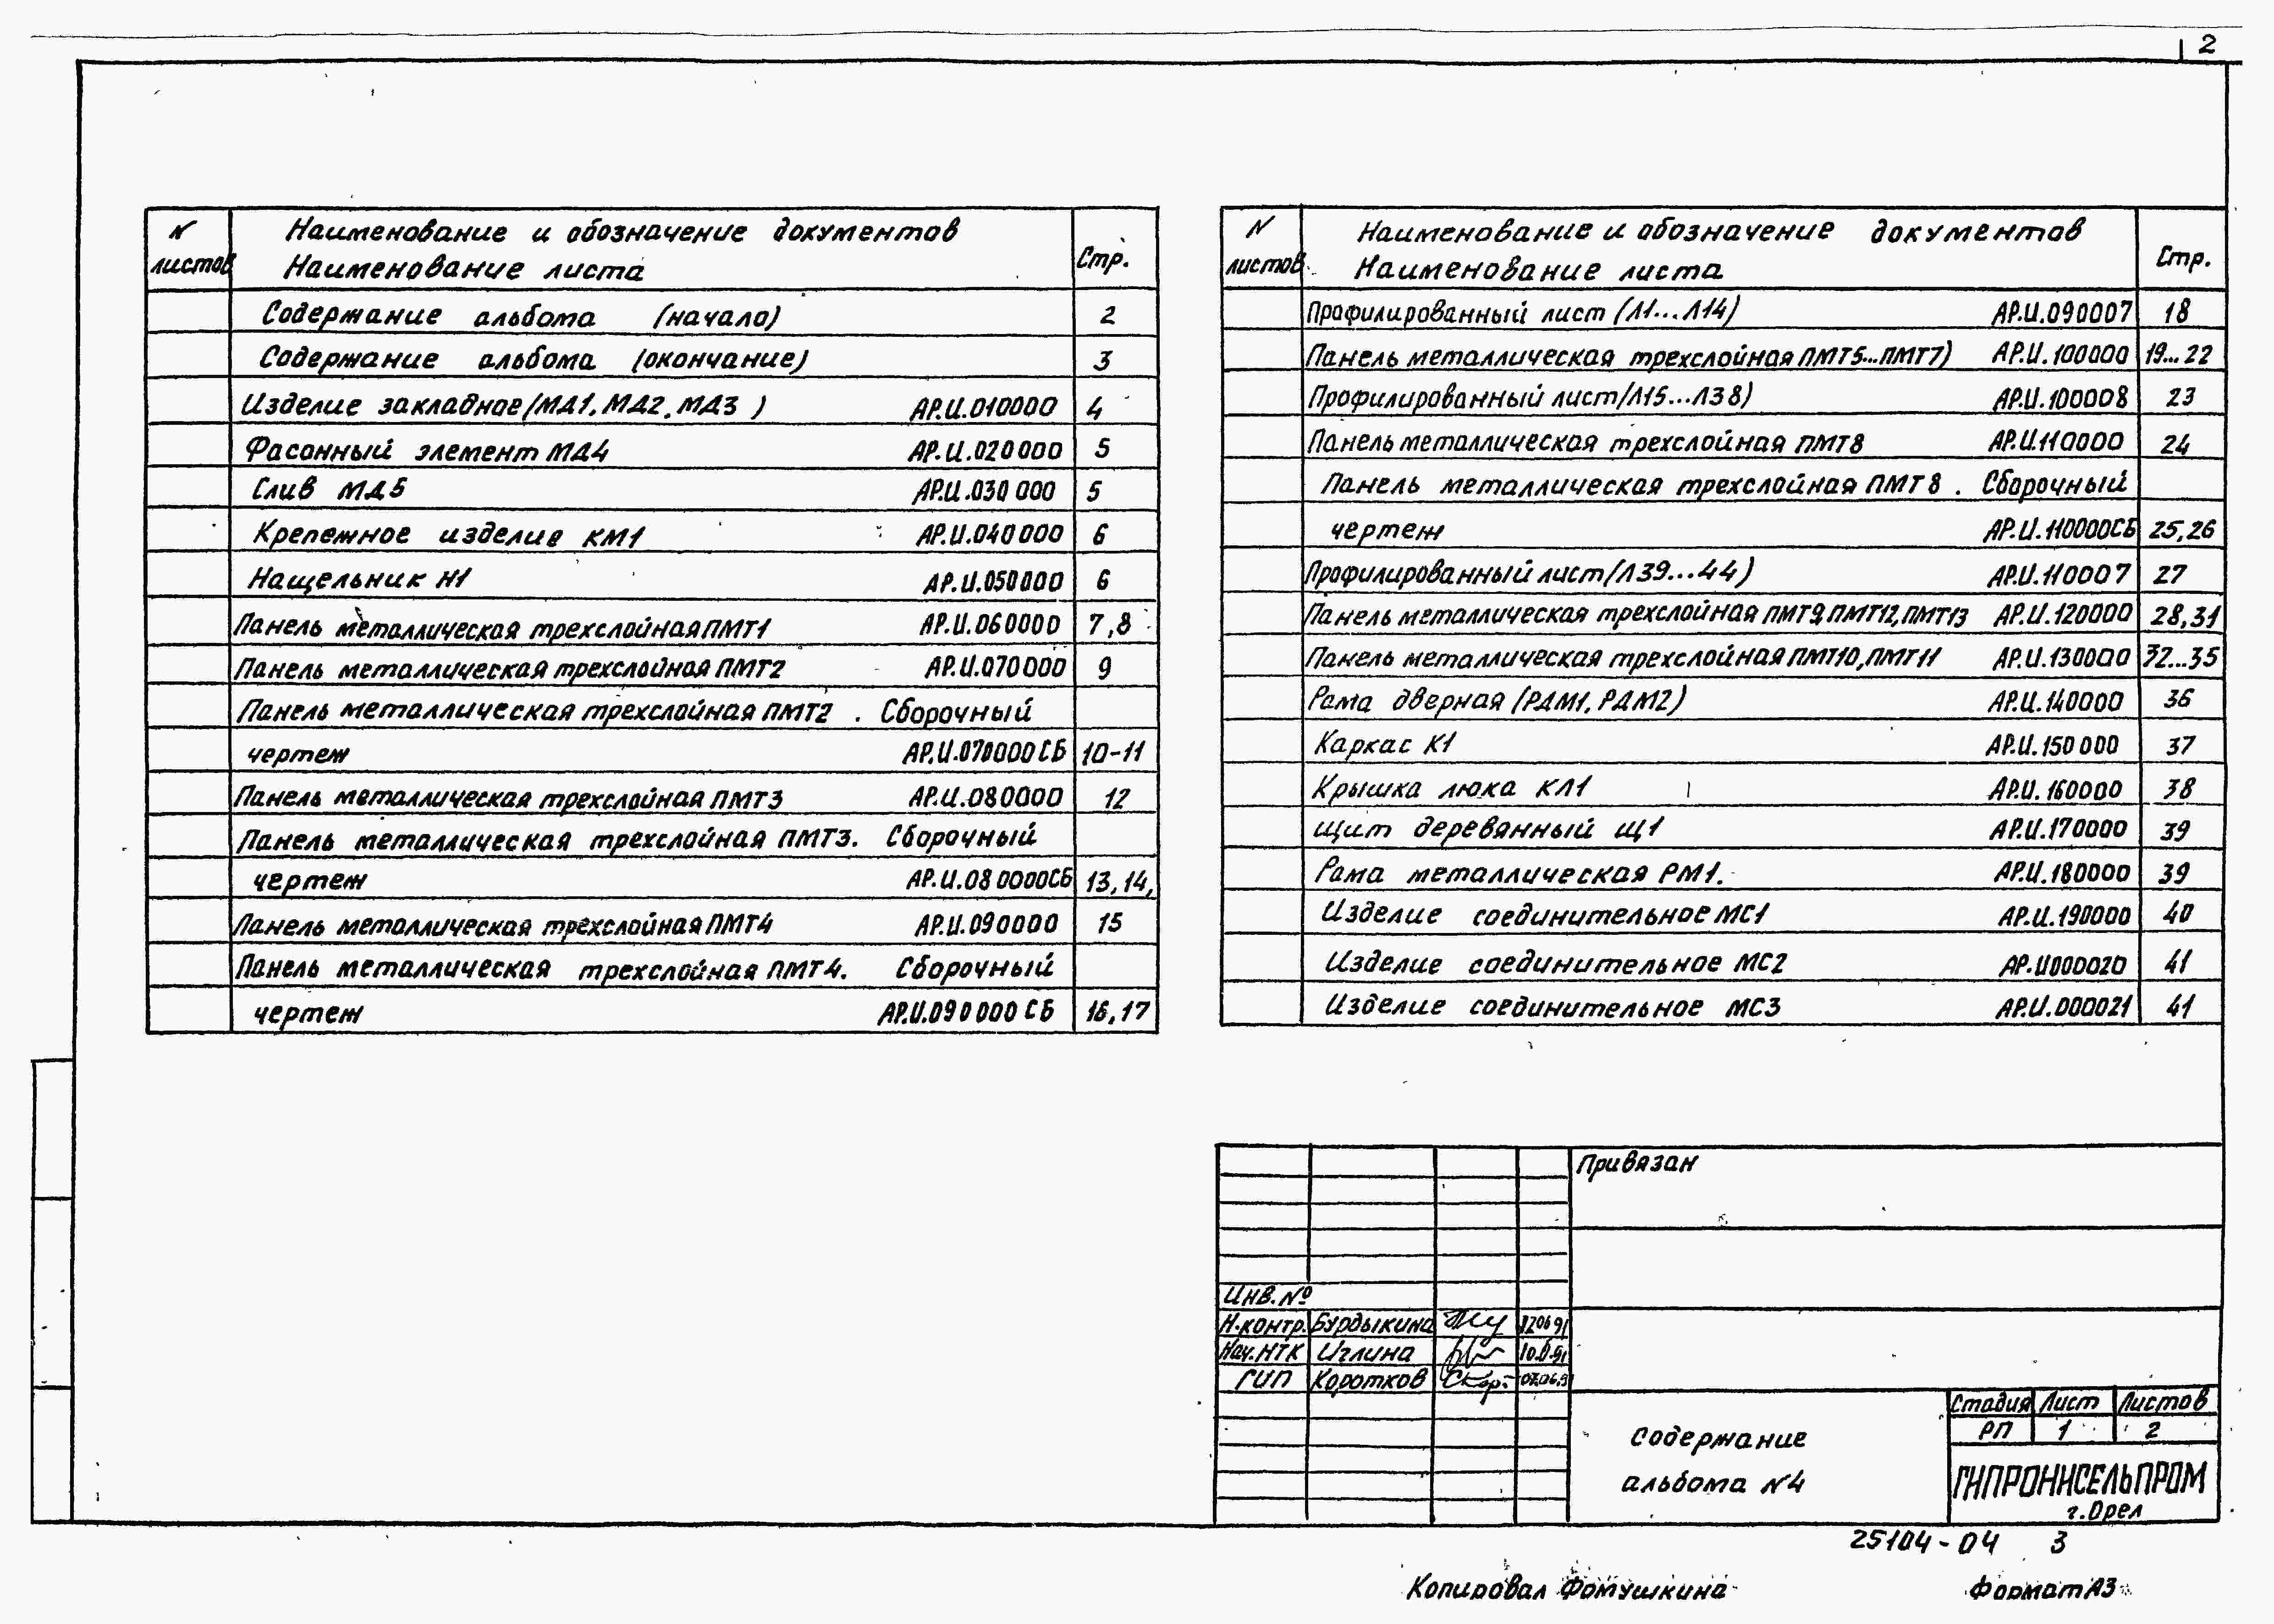 2
N листов Наименование и обозначение документов Стр.
Наименование листа
Содержание альбома (начало) 2
Содержание альбома (окончание) 3
Изделие закладное (МД1, МД2, МД3) АР.И.010000 4
Фасонный элемент МД4 АР.И.020000 5
Слив МД5 АР.И.030000 5
Крепежное изделие КМ1 АР.И.040000 6
Нащельник Н1 АР.И.050000 6
Панель металлическая трехслойная ПМТ1 АР.И.060000 7,8
Панель металлическая трехслойная ПМТ2 АР.И.070000 9
Панель металлическая трехслойная ПМТ2. Сборочный
чертеж АР.И.070000СБ 10-11
Панель металлическая трехслойная ПМТ3 АР.И.080000 12
Панель металлическая трехслойная ПМТ3. Сборочный
чертеж АР.И.080000СБ 13,14,
Панель металлическая трехслойная ПМТ4 АР.И.090000 15
Панель металлическая трехслойная ПМТ4. Сборочный
чертеж АР.И.090000СБ 16,17
N листов Наименование и обозначение документов Стр.
Наименование листа
Профилированный лист (Л1...Л14) АР.И.090007 18
Панель металлическая трехслойная ПМТ5...ПМТ7) АР.И.100000 19...22
Профилированный лист (Л15...Л38) АР.И.100008 23
Панель металлическая трехслойная ПМТ8 АР.И.110000 24
Панель металлическая трехслойная ПМТ8. Сборочный
чертеж АР.И.110000СБ 25,26
Профилированный лист (Л39...44) АР.И.110007 27
Панель металлическая трехслойная ПМТ9, ПМТ12, ПМТ13 АР.И.120000 28,31
Панель металлическая трехслойная ПМТ10, ПМТ11 АР.И.130000 32...35
Рама дверная (РДМ1, РДМ2) АР.И.140000 36
Каркас К1 АР.И.150000 37
Крышка люка КЛ1 АР.И.160000 38
Щит деревянный Щ1 АР.И.170000 39
Рама металлическая РМ1. АР.И.180000 39
Изделие соединительное МС1 АР.И.190000 40
Изделие соединительное МС2 АР.И000020 41
Изделие соединительное МС3 АР.И.000021 41
Привязан
Инв. №
Н.контр. Бурдыкина
Нач.НТК Иглина
ГИП Коротков
Содержание
альбома N4
Стадия Лист Листов
РП 1 2
ГИПРОНИСЕЛЬПРОМ
г.Орел
25104-04 3
Копировал Фомушкина Формат А3